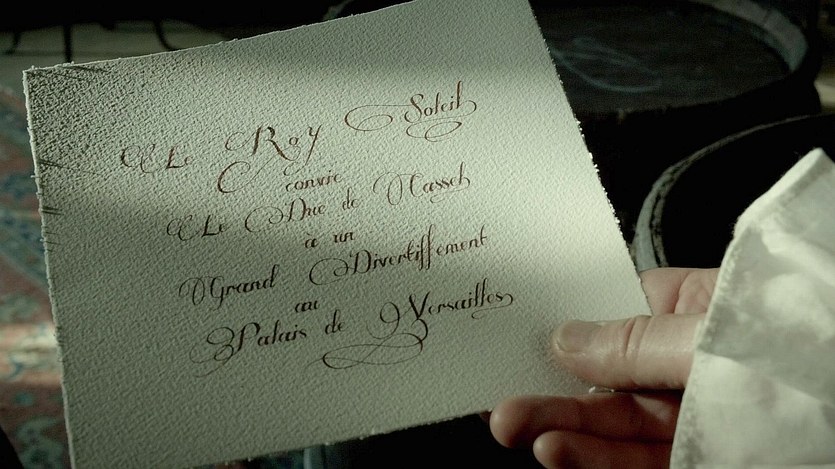 Le Roy Soleil
convie
Le Duc de Cassel
à un
Grand Divertissement
au
Palais de Versailles